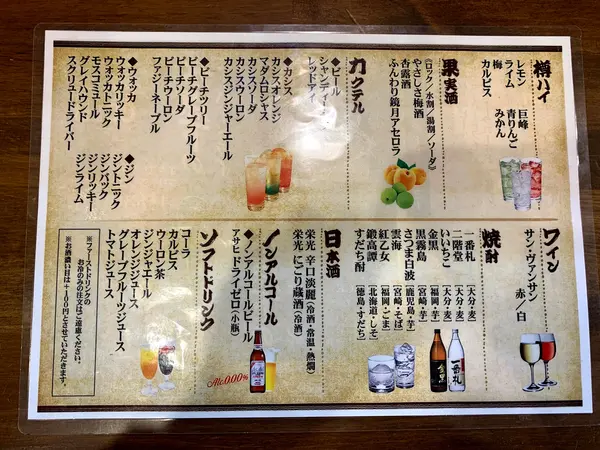 樽ハイ
レモン
ライム
梅
カルピス
巨峰
青りんご
みかん
果実酒
《ロック／水割／湯割／ソーダ》
やさしさ梅酒
杏露酒
ふんわり鏡月アセロラ
カクテル
◆ビール
シャンディーガフ
レッドアイ
◆カシス
カシスオレンジ
マダムロシャス
カシスソーダ
カシスウーロン
カシスジンジャーエール
◆ピーチツリー
ピーチグレープフルーツ
ピーチソーダ
ピーチウーロン
ファジーネーブル
◆ウォッカ
ウォッカリッキー
ウォッカトニック
モスコミュール
グレイハウンド
スクリュードライバー
◆ジン
ジントニック
ジンバック
ジンリッキー
ジンライム
ワイン
サン・ヴァンサン
赤／白
焼酎
一番札［大分・麦］
二階堂［大分・麦］
いいちこ［大分・麦］
金黒［福岡・芋］
黒霧島［宮崎・芋］
さつま白波［鹿児島・芋］
雲海［宮崎・そば］
紅乙女［福岡・ごま］
鍛高譚［北海道・しそ］
すだち酎［徳島・すだち］
一番札
金黒
日本酒
栄光 辛口淡麗（冷酒・常温・熱燗）
栄光 にごり蔵酒（冷酒）
ノンアルコール
◆ノンアルコールビール
アサヒドライゼロ（小瓶）
Alc.0.00%
ソフトドリンク
コーラ
カルピス
ウーロン茶
ジンジャエール
オレンジジュース
グレープフルーツジュース
トマトジュース
※ファーストドリンクの
お冷のみの注文はご遠慮ください。
※お酒濃い目は+100円とさせていただきます。